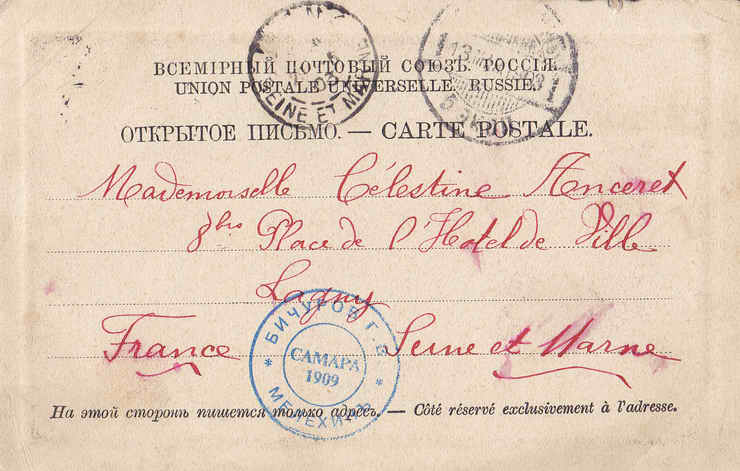 ВСЕМІРНЫЙ ПОЧТОВЫЙ СОЮЗЪ. РОССІЯ.
UNION POSTALE UNIVERSELLE. RUSSIE.
SEINE ET
ОТКРЫТОЕ ПИСЬМО. — CARTE POSTALE.
Mademoiselle Célestine Anceret
8bis Place de l'Hotel de Ville
Lagny
France Seine et Marne
БИЧУРОВ Г.В.
САМАРА
1909
МЕЛЕХИНЪ
На этой сторонѣ пишется только адресъ. — Côté réservé exclusivement à l'adresse.